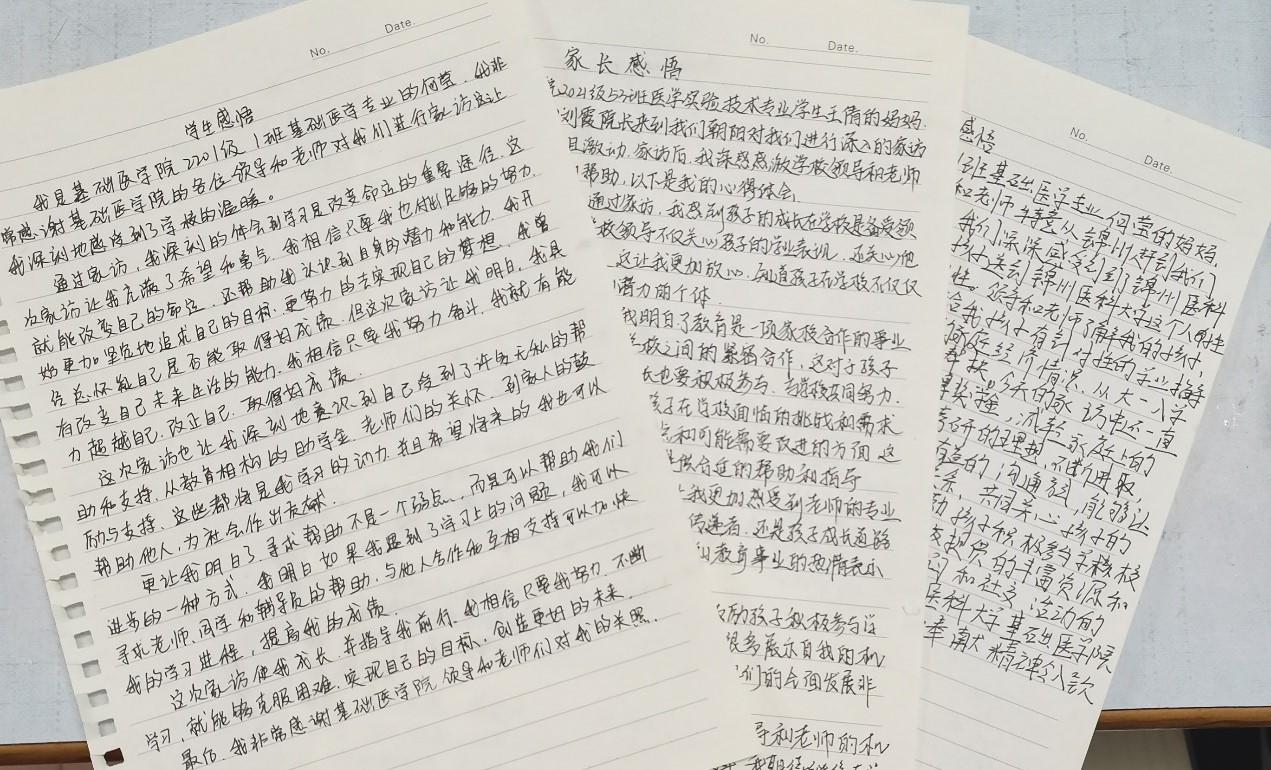 No.
Date.
学生感悟
我是基础医学院2201级1班基础医学专业的何莹.我非
常感谢基础医学院的各位领导和老师对我们进行家访它让
我深刻地感受到了学校的温暖。
通过家访,我深刻的体会到学习是改变命运的重要途径.这
次家访让我充满了希望和勇气.我相信只要我也付出足够的努力.
就能改变自己的命运.还帮助我认识到自身的潜力和能力.我开
始更加坚定地追求自己的目标.更努力的去实现自己的梦想.我曾
经总怀疑自己是否能取得好成绩.但这次家访让我明白,我具
有改变自己未来生活的能力.我相信只要我努力奋斗.我就有能
力超越自己.改正自己.取得好成绩.
这次家访也让我深刻地意识到自己受到了许多无私的帮
助和支持.从教育相构的助学金.老师们的关怀.到家人的鼓
励与支持.这些都将是我学习的动力.并且希望将来的我也可以
帮助他人,为社会作出贡献.
更让我明白了.寻求帮助不是一个弱点.,而是可以帮助我们
进步的一种方式.我明白如果我遇到了学习上的问题,我可以
寻求老师.同学和辅导员的帮助.与他人合作和互相支持可以加快
我的学习进程,提高我的成绩.
这次家访使我成长.并指导我前行.我相信只要我努力.不断
学习.就能够克服困难.实现自己的目标.创造更好的未来.
最后.我非常感谢基础医学院领导和老师们对我的关照.
No.
Date.
家长感悟
2021级53班医学实验技术专业学生王倩的妈妈.
刘霞院长来到我们朝阳对我们进行深入的家访
且激动.家访后.我深感感激学校领导和老师
帮助,以下是我的心得体会.
通过家访,我感到孩子的成长在学校是备受领
校领导不仅关心孩子的学业表现.还关心他
这让我更加放心.知道孩子在学校不仅仅
潜力的个体.
我明白了教育是一项家校合作的事业
校之间的紧密合作,这对于孩子
也要积极参与.与学校共同努力.
孩子在学校面临的挑战和需求
和可能需要改进的方面 这
供合适的帮助和指导
我更加感受到老师的专业
传递者.还是孩子成长道路
教育事业的热情表示
励孩子积极参与
多展示自我的机
们的全面发展非
导和老师的机
No.
Date.
感悟
班基础医学专业何莹的妈妈,
和老师专意从锦州 来到我们
我们深深感受到了锦州医科
孩子来到锦州医科大学这个人性
性。领导和老师了解我的孩子,
给我孩子有针对性的学业指导
经济情况.从大一入学
今天的家访中还一直
考研的理想,不断进取,
的沟通方式,能够让
系,共同关心孩子的
孩子积极参与学校
提供的丰富资源和
和社会活动的
医科大学基础医学院
奉献精神